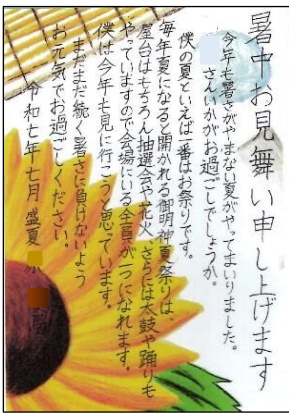 暑中お見舞い申し上げます
今年も暑さがやまない夏がやってまいりました。
さんいかがお過ごしでしょうか。
僕の夏といえば一番はお祭りです。
毎年夏になると開かれる御明神夏祭りは、
屋台はもちろん抽選会や花火、さらには太鼓や踊りも
やっていますので会場にいる全員が一つになれます。
僕は今年も見に行こうと思っています。
まだまだ続く暑さに負けないよう
お元気でお過ごしください。
令和七年七月盛夏